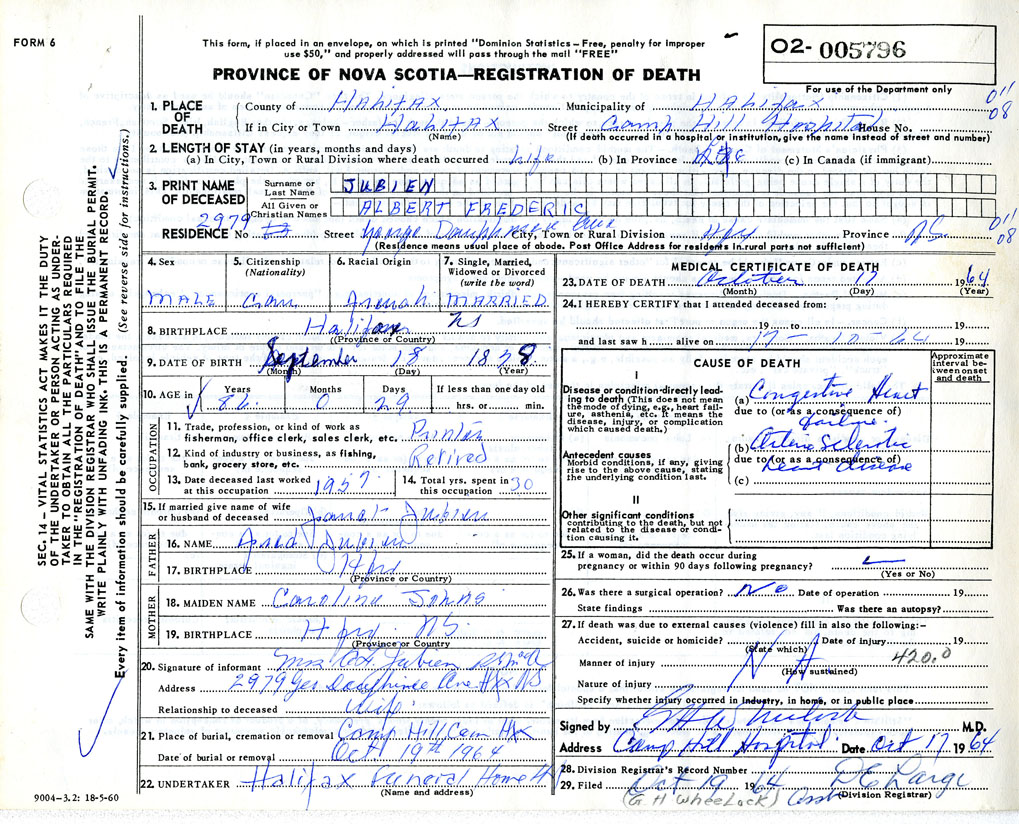 FORM 6
This form, if placed in an envelope, on which is printed "Dominion Statistics – Free, penalty for improper
use $50," and properly addressed will pass through the mail "FREE"
O2- 005796
PROVINCE OF NOVA SCOTIA—REGISTRATION OF DEATH
For use of the Department only
SEC. 14 – VITAL STATISTICS ACT MAKES IT THE DUTY
OF THE UNDERTAKER OR PERSON ACTING AS UNDER-
TAKER TO OBTAIN ALL THE PARTICULARS REQUIRED
IN THE "REGISTRATION OF DEATH" AND TO FILE THE
SAME WITH THE DIVISION REGISTRAR WHO SHALL ISSUE THE BURIAL PERMIT.
WRITE PLAINLY WITH UNFADING INK. THIS IS A PERMANENT RECORD.
Every item of information should be carefully supplied. (See reverse side for instructions.)
1. PLACE OF DEATH
County of Halifax Municipality of Halifax 011 08
If in City or Town Halifax (Name) Street Camp Hill Hospital House No.
(If death occurred in a hospital or institution, give the name instead of street and number)
2. LENGTH OF STAY (in years, months and days)
(a) In City, Town or Rural Division where death occurred Life (b) In Province (c) In Canada (if immigrant)
3. PRINT NAME OF DECEASED
Surname or Last Name JUBIEN
All Given or Christian Names ALBERT FREDERIC
2979
RESIDENCE No Street George Dauphinee Ave City, Town or Rural Division Hfx Province N.S. 011 08
(Residence means usual place of abode. Post Office Address for residents in rural parts not sufficient)
4. Sex MALE
5. Citizenship (Nationality) Can
6. Racial Origin French
7. Single, Married, Widowed or Divorced (write the word) MARRIED
8. BIRTHPLACE Halifax NS
(Province or Country)
9. DATE OF BIRTH September 18
(Month) (Day) (Year)
10. AGE in Years Months Days If less than one day old
86 0 29 hrs. or min.
OCCUPATION
11. Trade, profession, or kind of work as fisherman, office clerk, sales clerk, etc. Printer
12. Kind of industry or business, as fishing, bank, grocery store, etc. Retired
13. Date deceased last worked at this occupation 1957
14. Total yrs. spent in this occupation 30
15. If married give name of wife or husband of deceased Janet Jubien
FATHER
16. NAME Jubien
17. BIRTHPLACE Hfx
(Province or Country)
MOTHER
18. MAIDEN NAME Caroline Johns
19. BIRTHPLACE Hfx. NS.
(Province or Country)
20. Signature of informant Mrs A F Jubien
Address 2979 Geo Dauphinee Ave Hfx NS
Relationship to deceased Wife
21. Place of burial, cremation or removal Camp Hill Cem Hfx
Date of burial or removal Oct 19th 1964
22. UNDERTAKER Halifax Funeral Home
(Name and address)
9004-3.2: 18-5-60
MEDICAL CERTIFICATE OF DEATH
23. DATE OF DEATH October 17 1964
(Month) (Day) (Year)
24. I HEREBY CERTIFY that I attended deceased from:
19 to 19
and last saw h alive on 17-10-64 19
CAUSE OF DEATH
Approximate interval between onset and death
I
Disease or condition directly leading to death (This does not mean the mode of dying, e.g., heart failure, asthenia, etc. It means the disease, injury, or complication which caused death.)
(a) Congestive Heart
due to (or as a consequence of)
failure.
Antecedent causes
Morbid conditions, if any, giving rise to the above cause, stating the underlying condition last.
(b) Arterio Sclerotic
due to (or as a consequence of)
heart disease
(c)
II
Other significant conditions
contributing to the death, but not related to the disease or condition causing it.
25. If a woman, did the death occur during pregnancy or within 90 days following pregnancy?
(Yes or No)
26. Was there a surgical operation? No Date of operation 19
State findings Was there an autopsy?
27. If death was due to external causes (violence) fill in also the following:–
Accident, suicide or homicide? (State which) Date of injury 19
Manner of injury N A (How sustained) 420.0
Nature of injury
Specify whether injury occurred in industry, in home, or in public place
Signed by M.D.
Address Camp Hill Hospital Date Oct 17 1964
28. Division Registrar's Record Number
29. Filed Oct 19 1964 D E Large
(G H Wheelock) (Division Registrar)